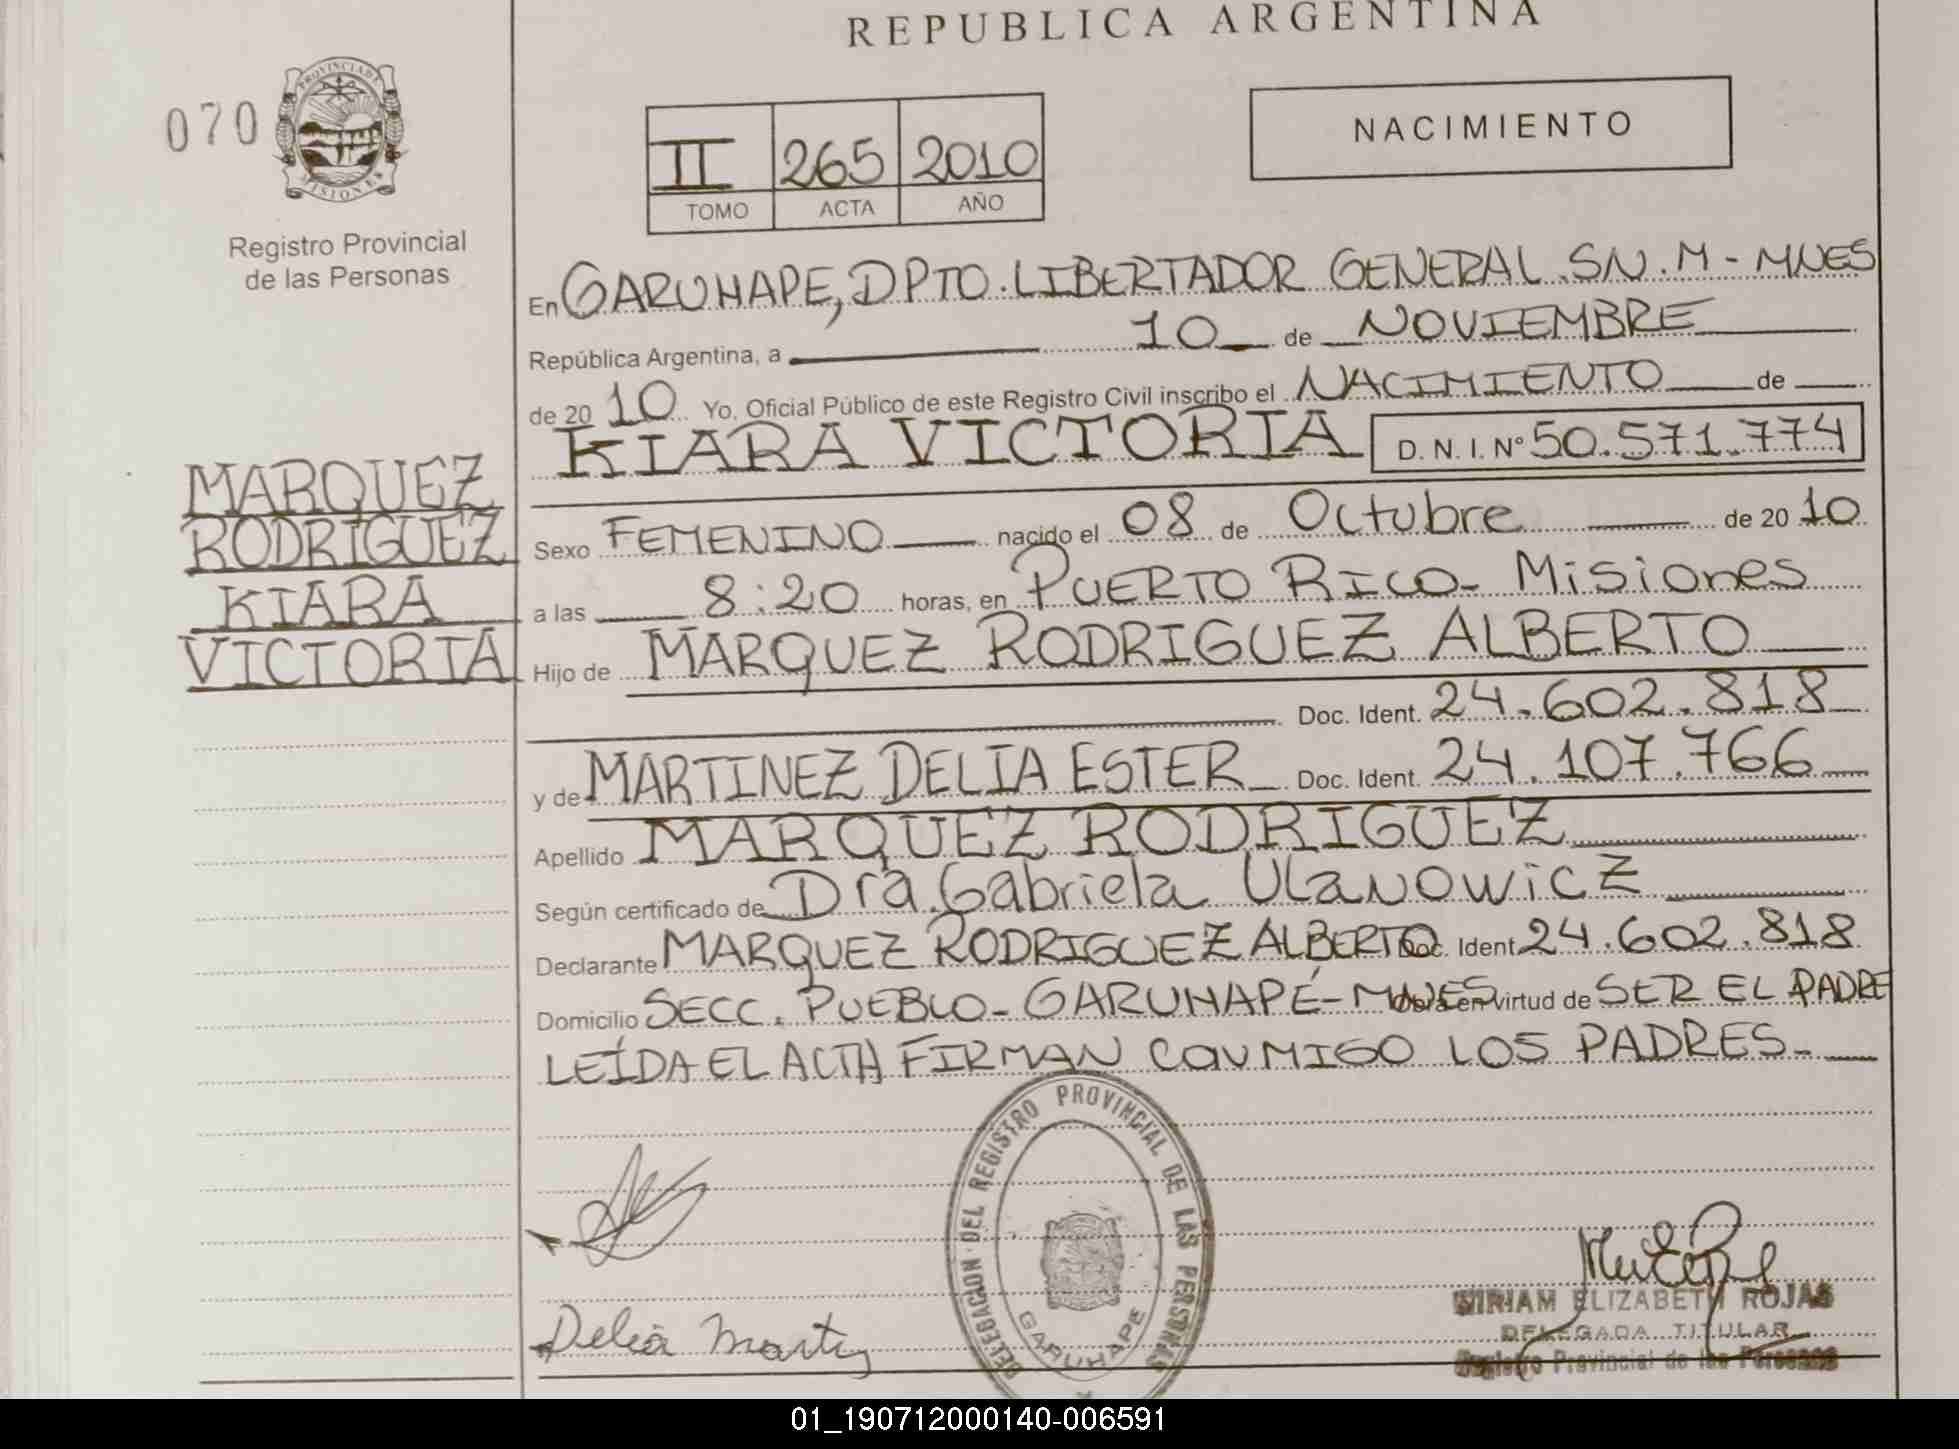 REPUBLICA ARGENTINA
070
PROVINCIA DE
MISIONES
Registro Provincial
de las Personas
II 265 2010
TOMO ACTA AÑO
NACIMIENTO
En GARUHAPE, DPTO. LIBERTADOR GENERAL. SN. M - MNES
República Argentina, a 10 de NOVIEMBRE
de 20 10 Yo, Oficial Público de este Registro Civil inscribo el NACIMIENTO de
KIARA VICTORIA D. N. I. Nº 50.571.774
MARQUEZ
RODRIGUEZ
KIARA
VICTORIA
Sexo FEMENINO nacido el 08 de Octubre de 20 10
a las 8:20 horas, en PUERTO RICO - Misiones
Hijo de MARQUEZ RODRIGUEZ ALBERTO
Doc. Ident. 24.602.818
y de MARTINEZ DELIA ESTER Doc. Ident. 24.107.766
Apellido MARQUEZ RODRIGUEZ
Según certificado de Dra. Gabriela Ulanowicz
Declarante MARQUEZ RODRIGUEZ ALBERTO Doc. Ident 24.602.818
Domicilio SECC. PUEBLO - GARUHAPÉ - MNES Obra en virtud de SER EL PADRE
LEÍDA EL ACTA FIRMAN CONMIGO LOS PADRES -
DELEGACION DEL REGISTRO PROVINCIAL DE LAS PERSONAS
GARUHAPE
Delia
MIRIAM ELIZABETH ROJAS
DELEGADA TITULAR
Registro Provincial de las Personas
01_190712000140-006591